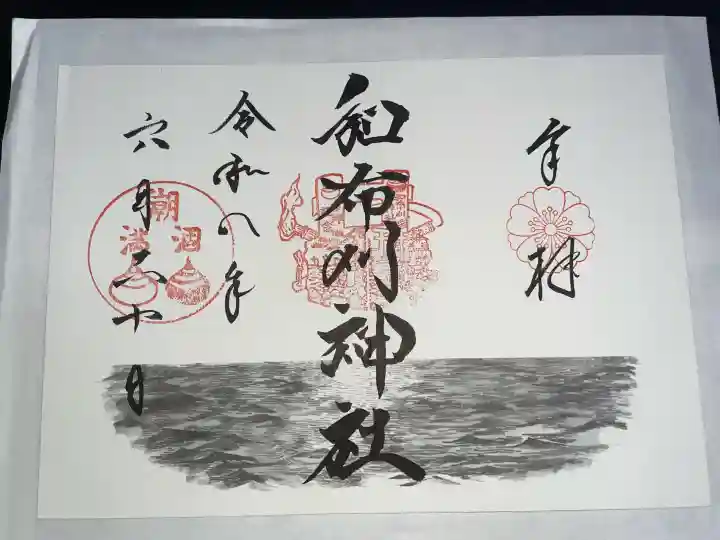 奉拝
和布刈神社
令和八年
六月二十日
潮
涸
満